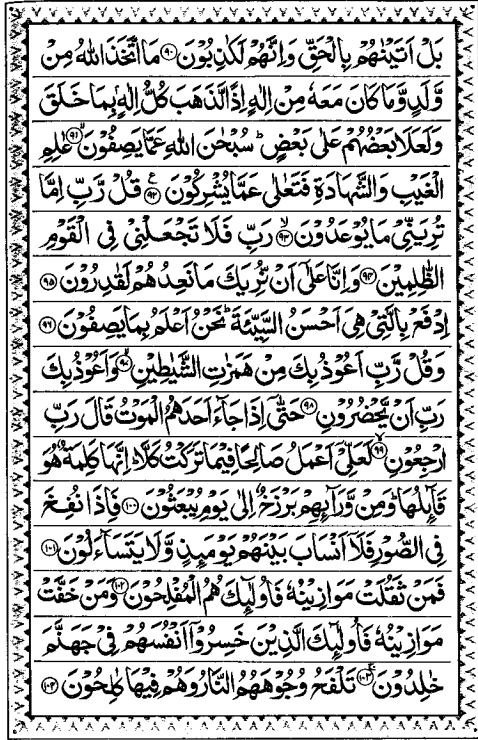 بَلْ اَتَيْنٰهُمْ بِالْحَقِّ وَاِنَّهُمْ لَكٰذِبُوْنَ ﴿۹۰﴾ مَا اتَّخَذَ اللّٰهُ مِنْ
وَّلَدٍ وَّمَا كَانَ مَعَهٗ مِنْ اِلٰهٍ اِذًا لَّذَهَبَ كُلُّ اِلٰهٍۭ بِمَا خَلَقَ
وَلَعَلَا بَعْضُهُمْ عَلٰى بَعْضٍ ؕ سُبْحٰنَ اللّٰهِ عَمَّا يَصِفُوْنَ ﴿۹۱﴾ عٰلِمِ
الْغَيْبِ وَالشَّهَادَةِ فَتَعٰلٰى عَمَّا يُشْرِكُوْنَ ﴿۹۲﴾ قُلْ رَّبِّ اِمَّا
تُرِيَنِّيْ مَا يُوْعَدُوْنَ ﴿۹۳﴾ رَبِّ فَلَا تَجْعَلْنِيْ فِي الْقَوْمِ
الظّٰلِمِيْنَ ﴿۹۴﴾ وَاِنَّا عَلٰٓى اَنْ نُّرِيَكَ مَا نَعِدُهُمْ لَقٰدِرُوْنَ ﴿۹۵﴾
اِدْفَعْ بِالَّتِيْ هِيَ اَحْسَنُ السَّيِّئَةَ ؕ نَحْنُ اَعْلَمُ بِمَا يَصِفُوْنَ ﴿۹۶﴾
وَقُلْ رَّبِّ اَعُوْذُ بِكَ مِنْ هَمَزٰتِ الشَّيٰطِيْنِ ﴿۹۷﴾ وَاَعُوْذُ بِكَ
رَبِّ اَنْ يَّحْضُرُوْنِ ﴿۹۸﴾ حَتّٰٓى اِذَا جَآءَ اَحَدَهُمُ الْمَوْتُ قَالَ رَبِّ
ارْجِعُوْنِ ﴿۹۹﴾ لَعَلِّيْٓ اَعْمَلُ صَالِحًا فِيْمَا تَرَكْتُ كَلَّا ؕ اِنَّهَا كَلِمَةٌ هُوَ
قَآئِلُهَا ؕ وَمِنْ وَّرَآئِهِمْ بَرْزَخٌ اِلٰى يَوْمِ يُبْعَثُوْنَ ﴿۱۰۰﴾ فَاِذَا نُفِخَ
فِي الصُّوْرِ فَلَآ اَنْسَابَ بَيْنَهُمْ يَوْمَئِذٍ وَّلَا يَتَسَآءَلُوْنَ ﴿۱۰۱﴾
فَمَنْ ثَقُلَتْ مَوَازِيْنُهٗ فَاُولٰٓئِكَ هُمُ الْمُفْلِحُوْنَ ﴿۱۰۲﴾ وَمَنْ خَفَّتْ
مَوَازِيْنُهٗ فَاُولٰٓئِكَ الَّذِيْنَ خَسِرُوْٓا اَنْفُسَهُمْ فِيْ جَهَنَّمَ
خٰلِدُوْنَ ﴿۱۰۳﴾ تَلْفَحُ وُجُوْهَهُمُ النَّارُ وَهُمْ فِيْهَا كٰلِحُوْنَ ﴿۱۰۴﴾